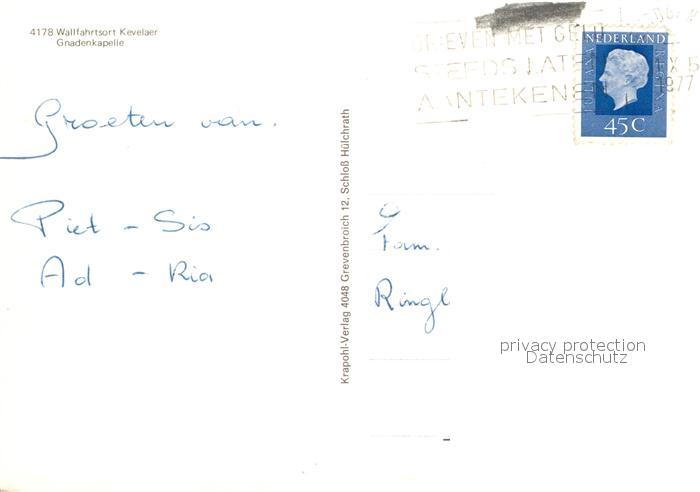 4178 Wallfahrtsort Kevelaer
Gnadenkapelle
Groeten van.
Piet - Sis
Ad - Ria
Krapohl-Verlag 4048 Grevenbroich 12, Schloß Hülchrath
BRIEVEN MET GELD
STEEDS LATEN
AANTEKENEN
1977
NEDERLAND
JULIANA REGINA
45 C
Fam.
Ringl
privacy protection
Datenschutz